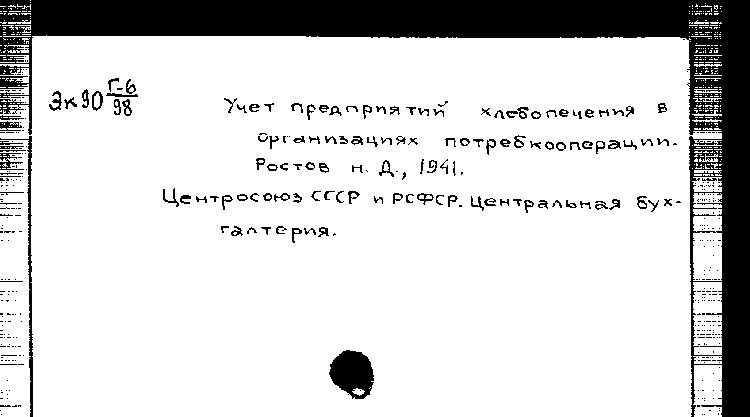 Эк90 Г-6/98
Учет предприятий хлебопечения в
организациях потребкооперации.
Ростов н. Д., 1941.
Центросоюз СССР и РСФСР. Центральная бух-
галтерия.